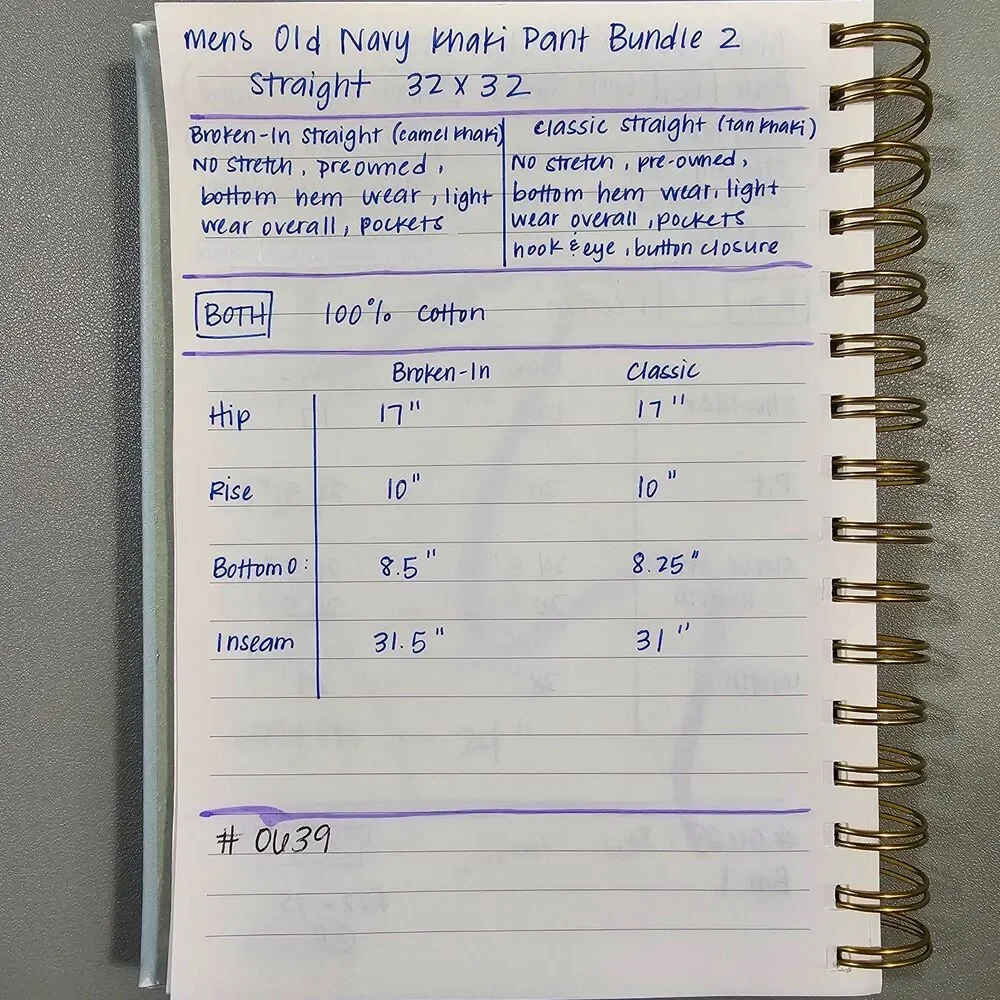 mens Old Navy Khaki Pant Bundle 2
Straight 32 x 32
Broken-In straight (camel khaki)
No stretch, preowned,
bottom hem wear, light
wear overall, pockets
classic straight (tan khaki)
No stretch, pre-owned,
bottom hem wear, light
wear overall, pockets
hook & eye, button closure
BOTH 100% cotton
Broken-In Classic
Hip 17" 17"
Rise 10" 10"
Bottom O: 8.5" 8.25"
Inseam 31.5" 31"
# 0639